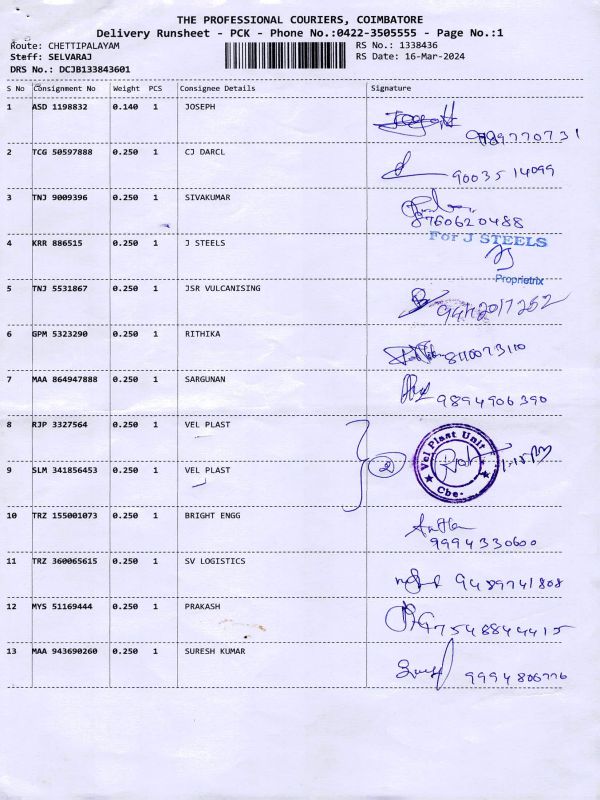 THE PROFESSIONAL COURIERS, COIMBATORE
Delivery Runsheet - PCK - Phone No.:0422-3505555 - Page No.:1
Route: CHETTIPALAYAM RS No.: 1338436
Steff: SELVARAJ RS Date: 16-Mar-2024
DRS No.: DCJB133843601
S No Consignment No Weight PCS Consignee Details Signature
1 ASD 1198832 0.140 1 JOSEPH
9789770731
2 TCG 50597888 0.250 1 CJ DARCL
9003514099
3 TNJ 9009396 0.250 1 SIVAKUMAR
8760620488
For J STEELS
4 KRR 886515 0.250 1 J STEELS
Proprietrix
5 TNJ 5531867 0.250 1 JSR VULCANISING
6 GPM 5323290 0.250 1 RITHIKA
7 MAA 864947888 0.250 1 SARGUNAN
9894906390
8 RJP 3327564 0.250 1 VEL PLAST
Vel Plast Unit
2
9 SLM 341856453 0.250 1 VEL PLAST
Cbe.
10 TRZ 155001073 0.250 1 BRIGHT ENGG
9994330600
11 TRZ 360065615 0.250 1 SV LOGISTICS
9489741808
12 MYS 51169444 0.250 1 PRAKASH
9754884415
13 MAA 943690260 0.250 1 SURESH KUMAR
9994806776